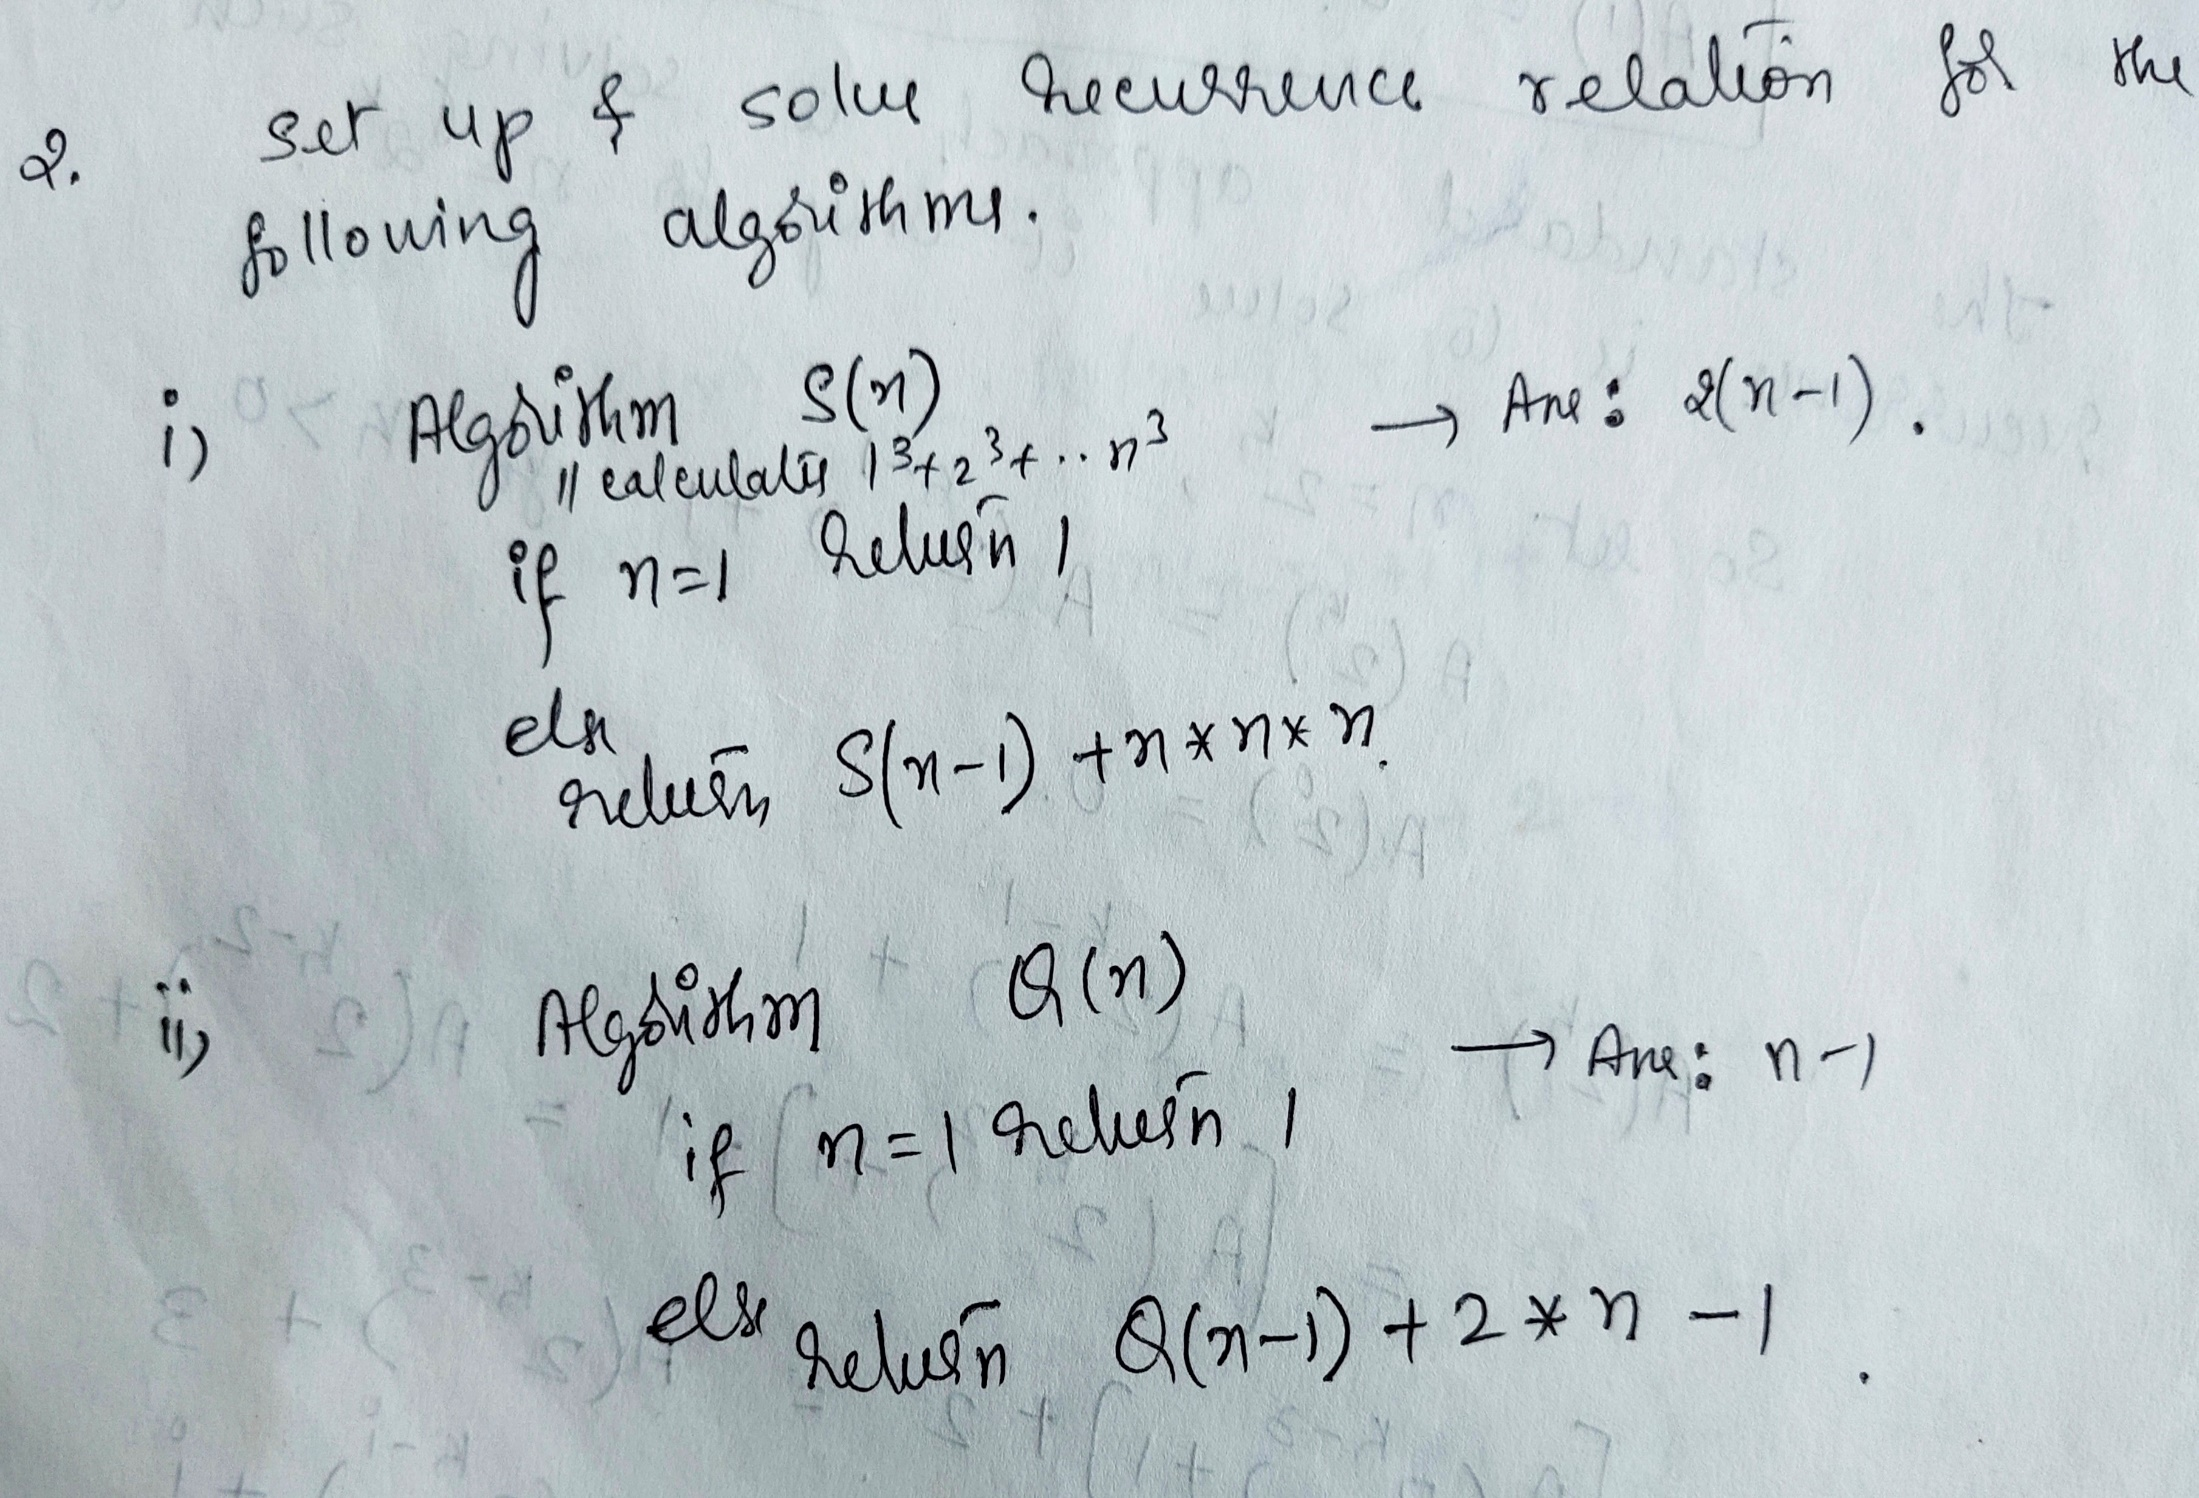 2. Set up & solve recurrence relation for the
following algorithms.
i) Algorithm S(n) → Ans: 2(n-1).
// calculates 1³+2³+..n³
if n=1 return 1
else
return S(n-1) +n*n*n.
ii) Algorithm Q(n) → Ans: n-1
if n=1 return 1
else return Q(n-1) + 2*n -1.